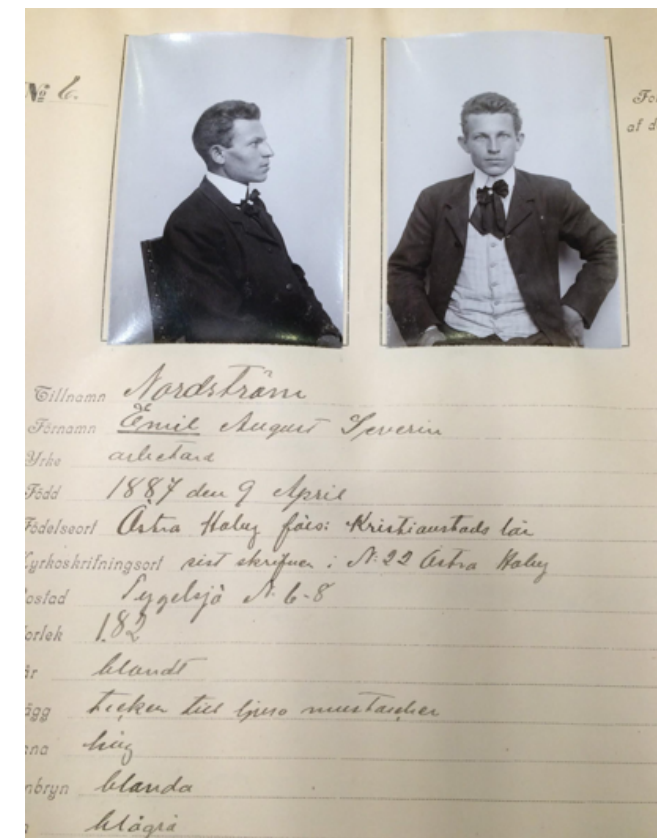 No 6.
Fo
af d
Tillnamn Nordström
Förnamn Emil August Severin
Yrke arbetare
Född 1887 den 9 April
Födelseort Östra Hobyförs: Kristianstads län
Kyrkoskrifningsort sist skrifven i N: 22 Östra Hoby
ostad N: 6-8
orlek 1.82
år blandt
ägg tecken till ljusa mustascher
nna hög
nbryn blonda
blågrå